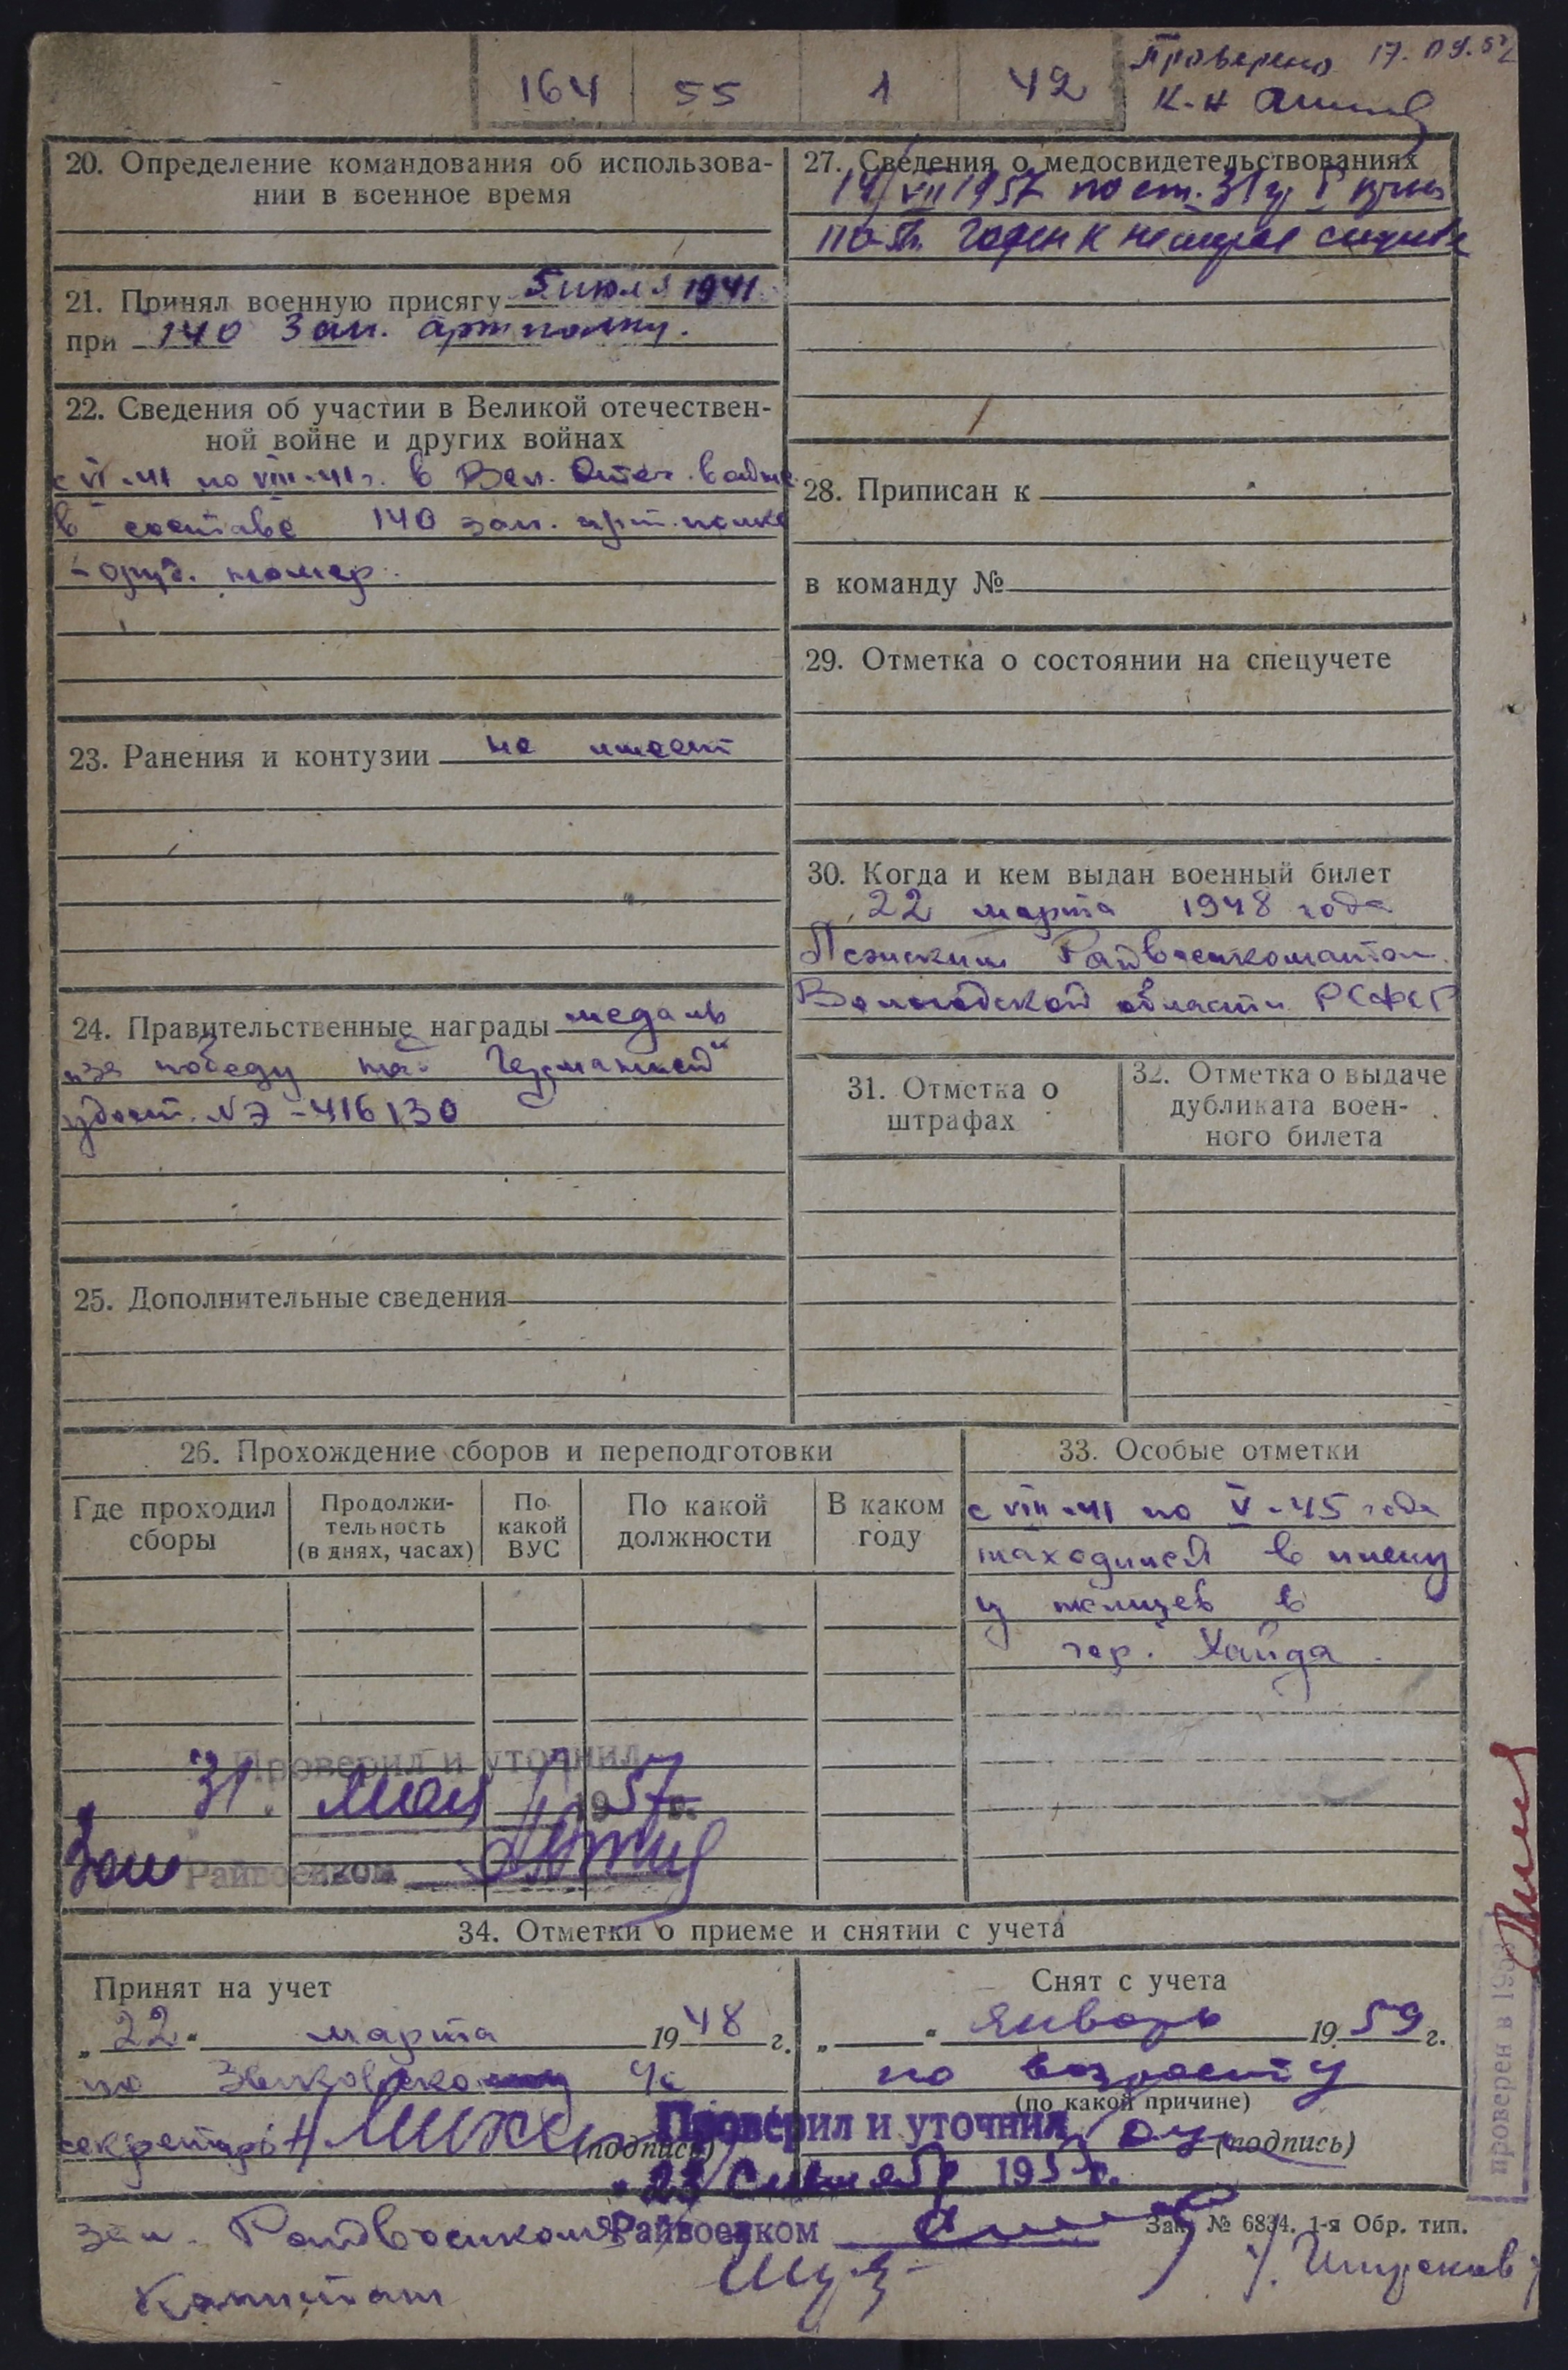 164 55 1 42
Проверено 17.09.57
К-н
20. Определение командования об использова-
нии в военное время
21. Принял военную присягу 5 июля 1941
при 140 зап. артполку.
22. Сведения об участии в Великой отечествен-
ной войне и других войнах
с VI-41 по VIII-41 г. в Вел. Отеч. войне
в составе 140 зап. арт. полка
- оруд. номер.
23. Ранения и контузии не имеет
24. Правительственные награды медаль
„за победу над Германией“
удост. № Э-416130
25. Дополнительные сведения
27. Сведения о медосвидетельствованиях
19/VII 1957 по ст. 31
годен к нестроев службе
28. Приписан к
в команду №
29. Отметка о состоянии на спецучете
30. Когда и кем выдан военный билет
22 марта 1948 года
Райвоенкоматом.
Вологодской области РСФСР
31. Отметка о
штрафах
32. Отметка о выдаче
дубликата воен-
ного билета
26. Прохождение сборов и переподготовки
Где проходил
сборы
Продолжи-
тельность
(в днях, часах)
По
какой
ВУС
По какой
должности
В каком
году
33. Особые отметки
с VIII-41 по V-45 года
находился в плену
у немцев в
гор. Хайда.
Проверил и уточнил
31. мая 1957 г.
Зам Райвоенком
34. Отметки о приеме и снятии с учета
Принят на учет
„22“ марта 1948 г.
по
секретарь
(подпись)
Снят с учета
„ “ январь 1959 г.
по возрасту
(по какой причине)
(подпись)
Проверил и уточнил
195 г.
Райвоенком
зам. Райвоенкома
Капитан
Зак. № 6834. 1-я Обр. тип.
проверен в 195